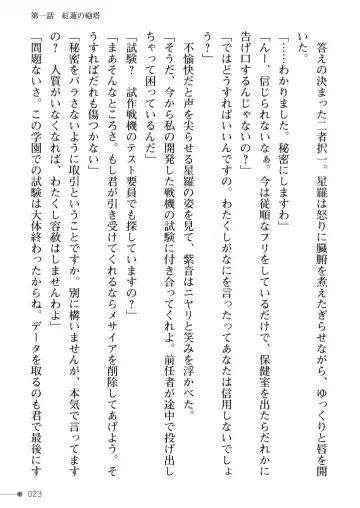 第一話　紅蓮の砲塔
　答えの決まった二者択一。星羅は怒りに臓腑を煮えたぎらせながら、ゆっくりと唇を開
いた。
「……わかりました。秘密にしますわ」
「んー、信じられないなぁ。今は従順なフリをしているだけで、保健室を出たらだれかに
告げ口するんじゃないの？」
「ではどうすればいいんですの。わたくしがなにを言ったってあなたは信用しないでしょ
う？」
　不愉快だと声を尖らせる星羅の姿を見て、紫音はニヤリと笑みを浮かべた。
「そうだ、今から私の開発した戦機の試験に付き合ってくれよ。前任者が途中で投げ出し
ちゃって困っているんだ」
「試験？　試作戦機のテスト要員でも探しているんですの？」
「まあそんなところさ。もし君が引き受けてくれるならメサイアを削除してあげよう。そ
うすればだれも傷つかない」
「秘密をバラさないように取引ということですか。別に構いませんが、本気で言ってます
の？　人質がいなくなれば、わたくし容赦はしませんわよ」
「問題ないさ。この学園での試験は大体終わったからね。データを取るのも君で最後にす
023